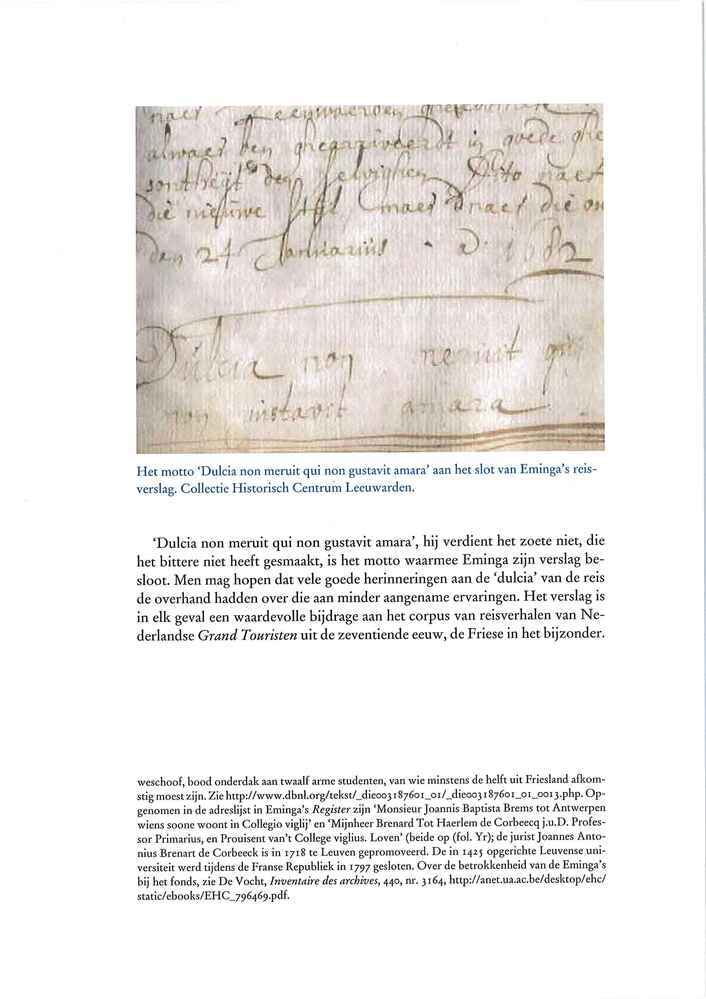 naer Leeuwaerden
alwaer ben ghearriveerdt in goede ghe
sontheÿt den selvighen Dito naer
die nieuwe Stijl maer naer die ou
den 24 Januarius . A° . 1682
Dulcia non meruit qui
non gustavit amara
Het motto ‘Dulcia non meruit qui non gustavit amara’ aan het slot van Eminga’s reis-
verslag. Collectie Historisch Centrum Leeuwarden.
‘Dulcia non meruit qui non gustavit amara’, hij verdient het zoete niet, die
het bittere niet heeft gesmaakt, is het motto waarmee Eminga zijn verslag be-
sloot. Men mag hopen dat vele goede herinneringen aan de ‘dulcia’ van de reis
de overhand hadden over die aan minder aangename ervaringen. Het verslag is
in elk geval een waardevolle bijdrage aan het corpus van reisverhalen van Ne-
derlandse Grand Touristen uit de zeventiende eeuw, de Friese in het bijzonder.
weschoof, bood onderdak aan twaalf arme studenten, van wie minstens de helft uit Friesland afkom-
stig moest zijn. Zie http://www.dbnl.org/tekst/_die003187601_01/_die003187601_01_0013.php. Op-
genomen in de adreslijst in Eminga’s Register zijn ‘Monsieur Joannis Baptista Brems tot Antwerpen
wiens soone woont in Collegio viglij’ en ‘Mijnheer Brenard Tot Haerlem de Corbeecq j.u.D. Profes-
sor Primarius, en Prouisent van’t College viglius. Loven’ (beide op (fol. Yr); de jurist Joannes Anto-
nius Brenart de Corbeeck is in 1718 te Leuven gepromoveerd. De in 1425 opgerichte Leuvense uni-
versiteit werd tijdens de Franse Republiek in 1797 gesloten. Over de betrokkenheid van de Eminga’s
bij het fonds, zie De Vocht, Inventaire des archives, 440, nr. 3164, http://anet.ua.ac.be/desktop/ehc/
static/ebooks/EHC_796469.pdf.